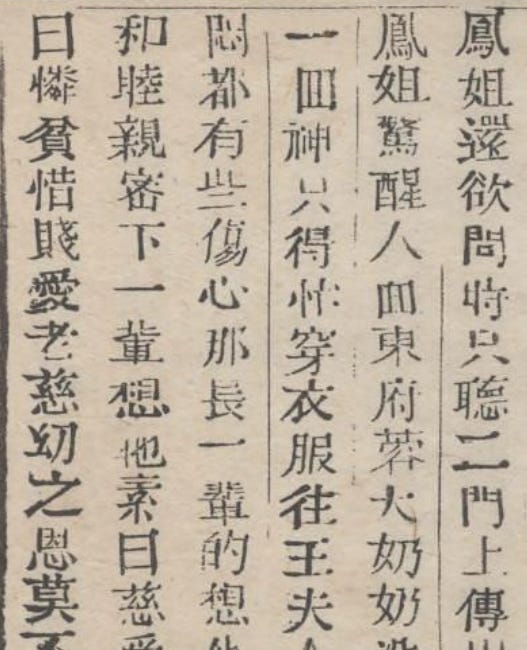 鳳姐還欲問時只聽二門上傳
鳳姐驚醒人囬東府蓉大奶奶
一囬神只得忙穿衣服往王夫
悶都有些傷心那長一輩的想
和睦親密下一輩想他素日慈
日憐貧惜賤愛老慈幼之恩莫